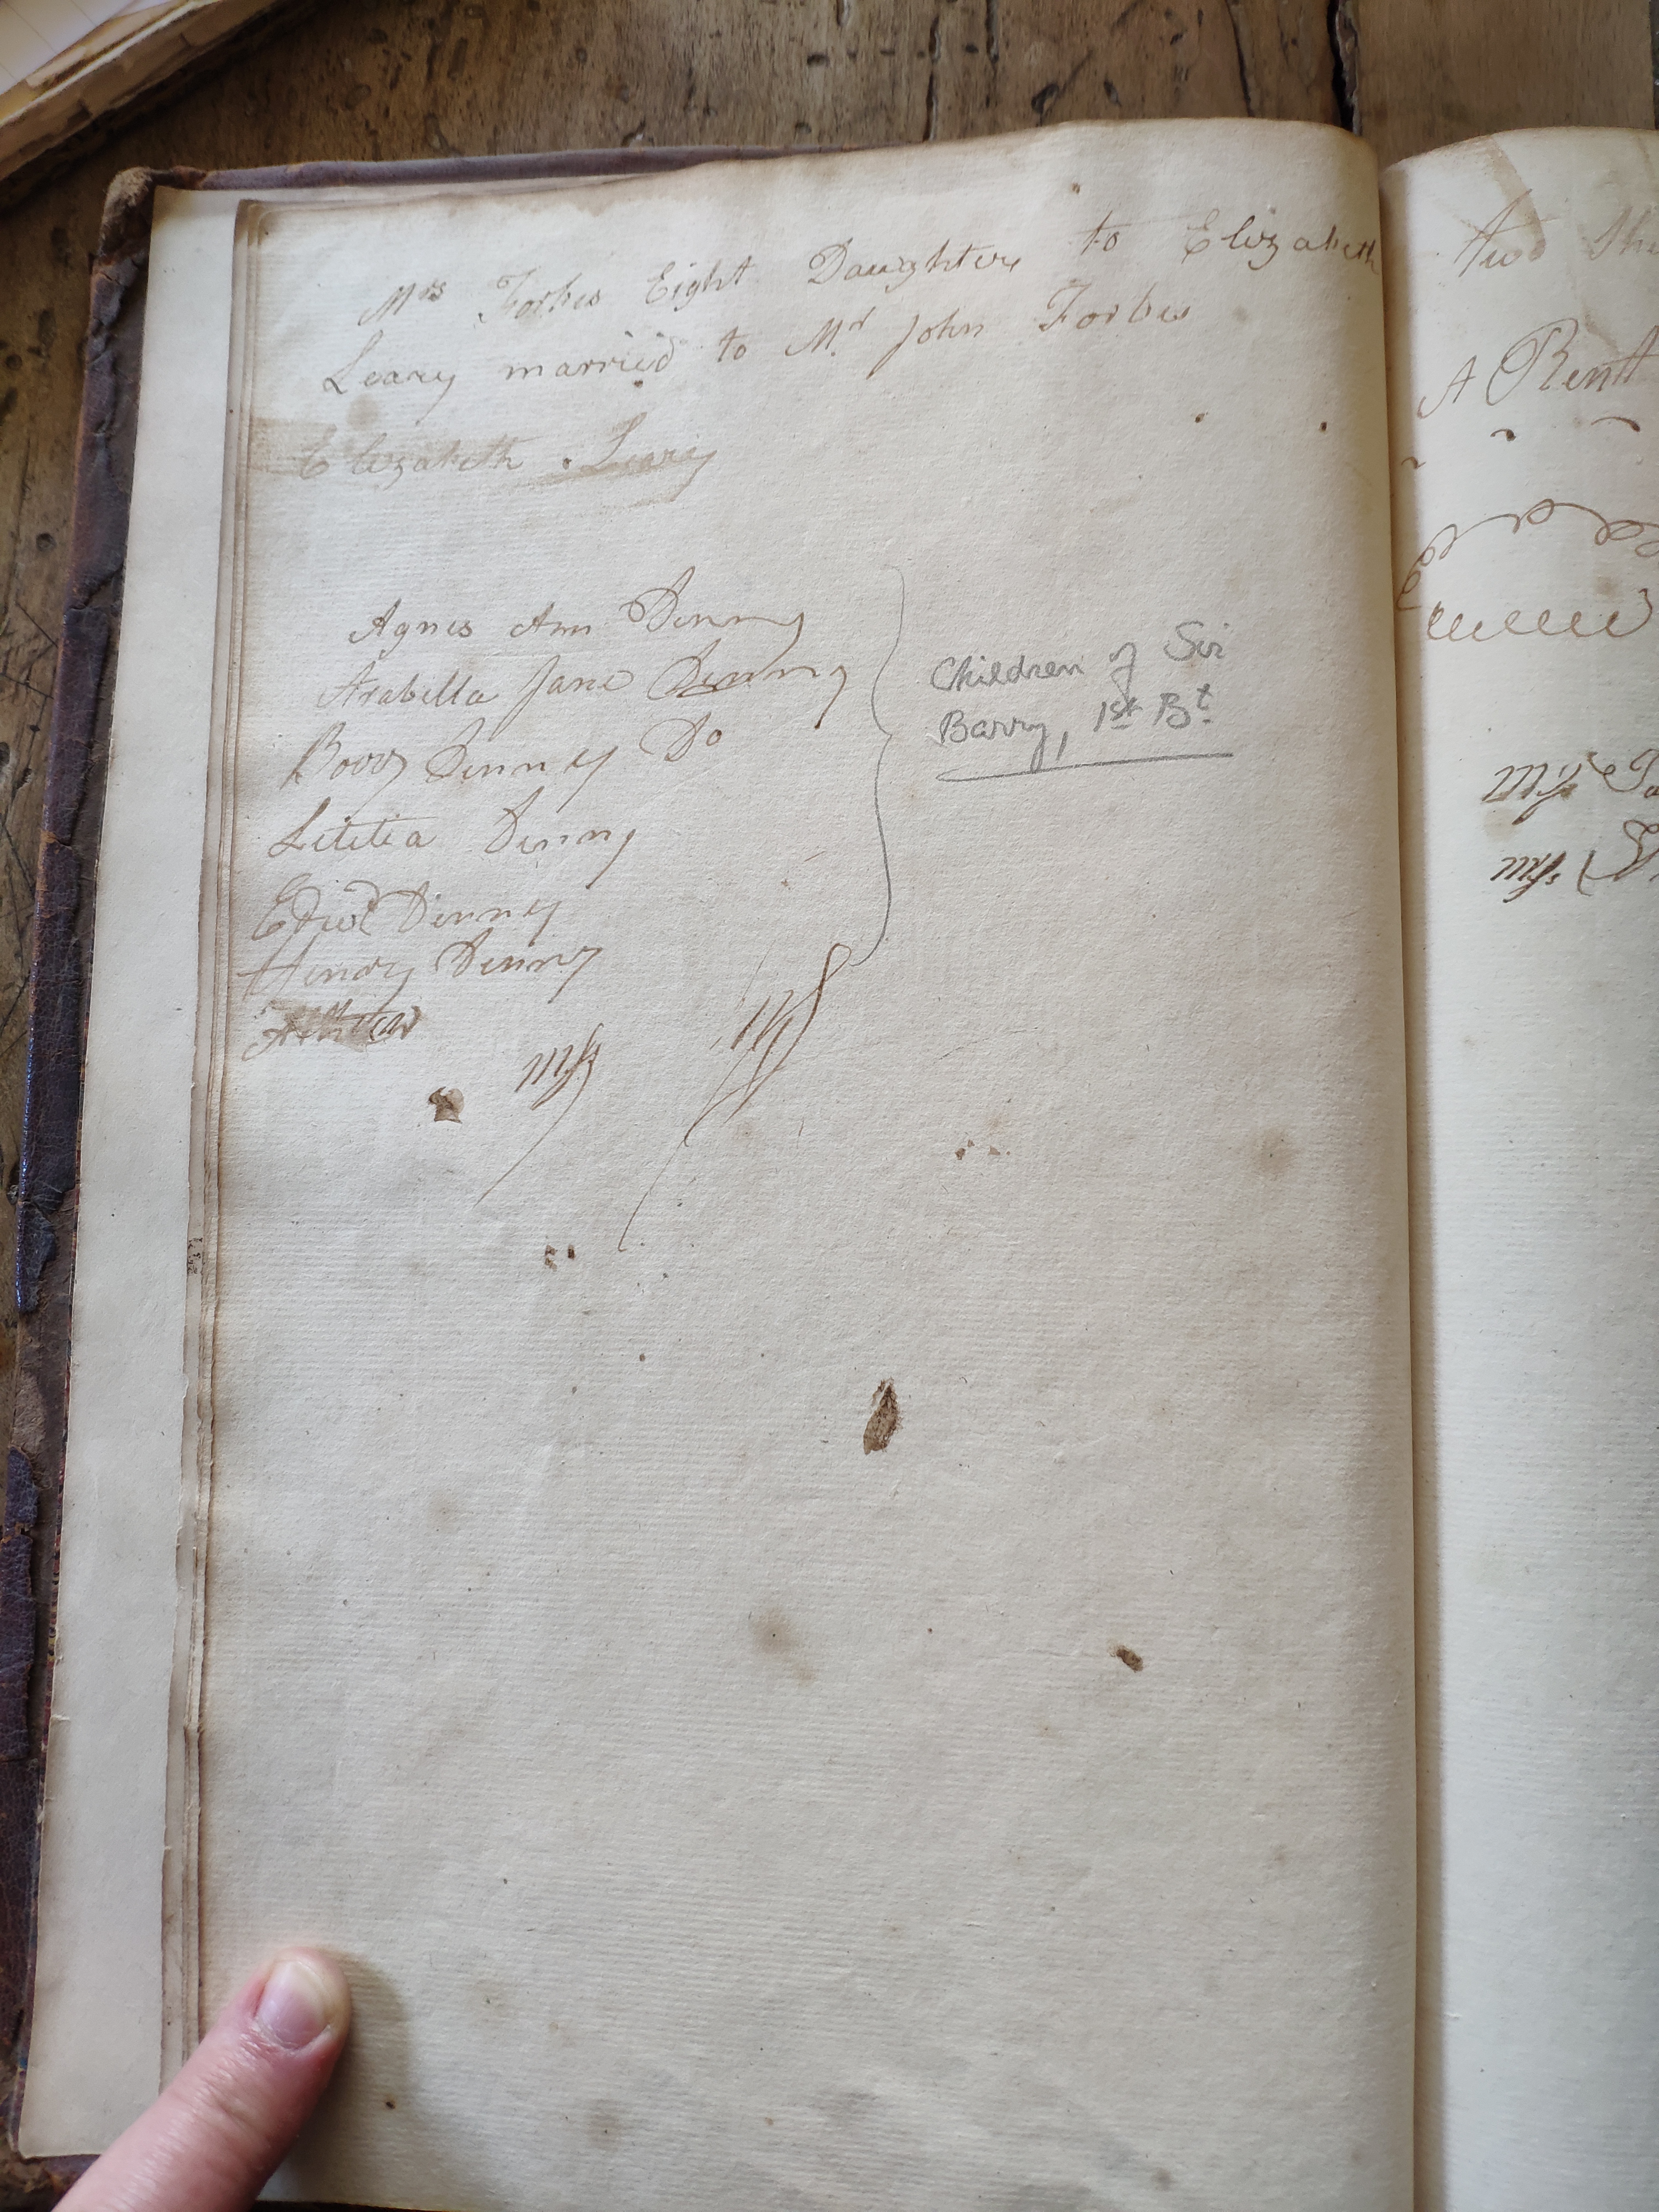 Mrs Forbes Eight Daughters to Elizabeth
Leary married to Mr John Forbes
Elizabeth Leary
Agnes Ann Denny
Arabella Jane Denny
Barry Denney Do
Letitia Denny
Edwd Denney
Henry Denny
Children of Sir
Barry, 1st Bt.
A Rent